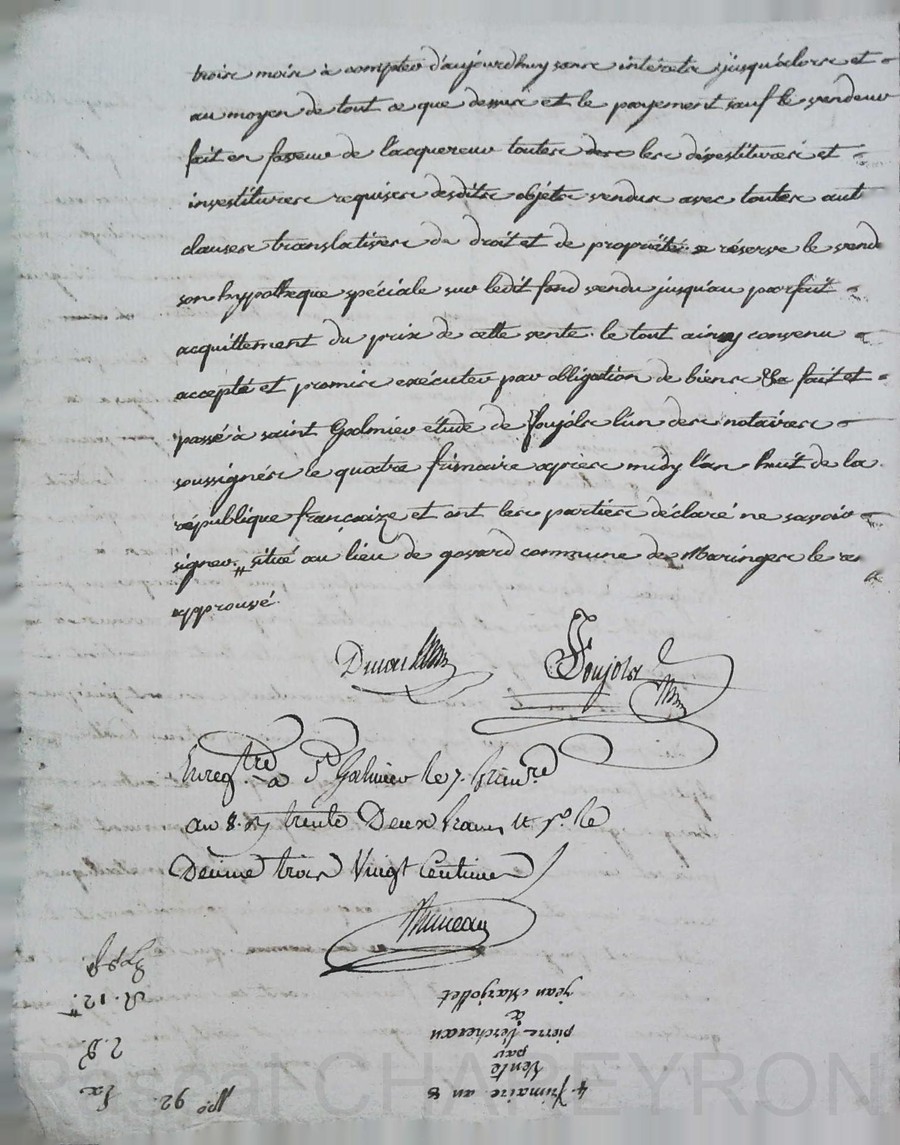 trois mois à compter d'aujourdhuy sans intérets jusqu'alors et
au moyen de tout ce que dessus et le payement sauf le vendeur
fait en faveur de l'acquereur toutes des les dévestitures et
investitures requises desdits objets vendus avec toutes aut
clauses translatives de droit et de propriété se réserve le vend
son hypotheque spéciale sur ledit fond vendu jusqu'au parfait
acquittement du prix de cette vente. le tout ainsy convenu
accepté et promis exécuter par obligation de biens &c fait et
passé à saint Galmier étude de Foujols l'un des notaires
soussignés le quatre frimaire après midy l'an huit de la
république françaize et ont les parties déclaré ne savoir
signer. # situé au lieu de gosard commune de Maringes le
approuvé.
Foujols
Enregistré à St Galmier le 7. frimre
an 8. trente Deux francs le
Dexime trois Vingt Centimes
4. frimaire an 8
Vente
par
pierre Vercherau
à
jean Marjollet
No. 92.
R. 12.
Pascal CHAPEYRON